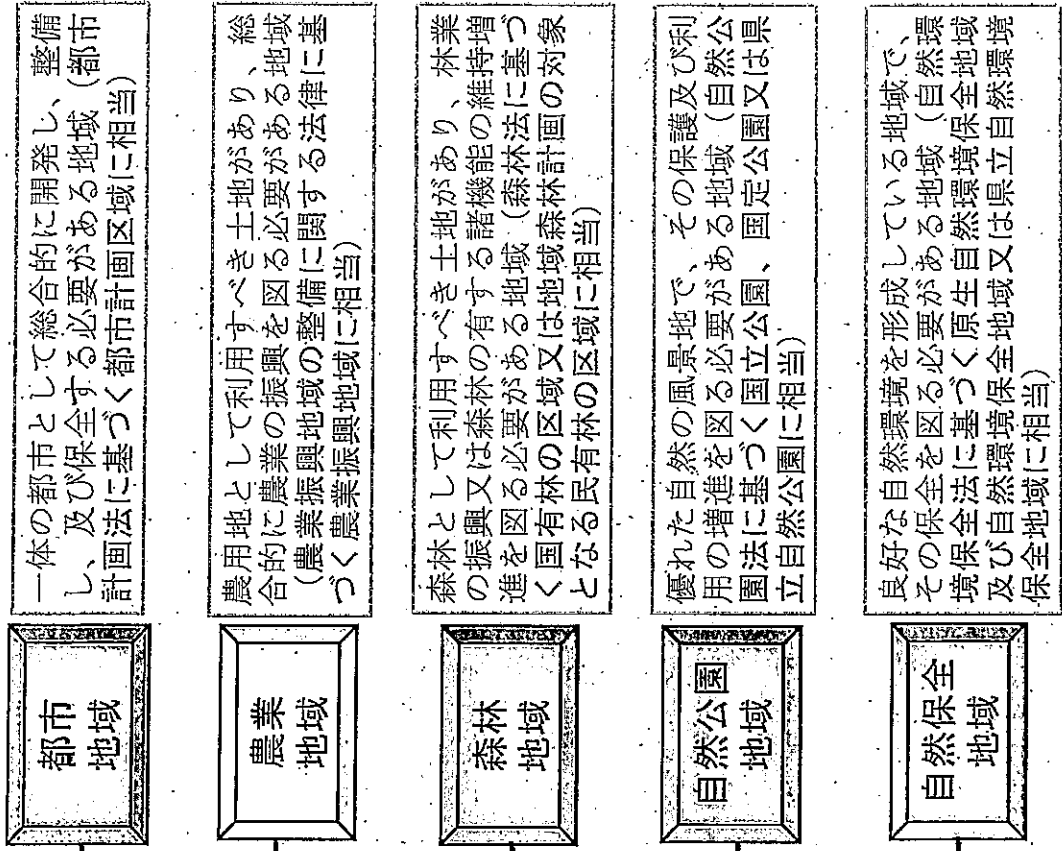 都市
地域
一体の都市として総合的に開発し、整備
し、及び保全する必要がある地域（都市
計画法に基づく都市計画区域に相当）
農業
地域
農用地として利用すべき土地があり、総
合的に農業の振興を図る必要がある地域
（農業振興地域の整備に関する法律に基
づく農業振興地域に相当）
森林
地域
森林として利用すべき土地があり、林業
の振興又は森林の有する諸機能の維持増
進を図る必要がある地域（森林法に基づ
く国有林の区域又は地域森林計画の対象
となる民有林の区域に相当）
自然公園
地域
優れた自然の風景地で、その保護及び利
用の増進を図る必要がある地域（自然公
園法に基づく国立公園、国定公園又は県
立自然公園に相当）
自然保全
地域
良好な自然環境を形成している地域で、
その保全を図る必要がある地域（自然環
境保全法に基づく原生自然環境保全地域
及び自然環境保全地域又は県立自然環境
保全地域に相当）